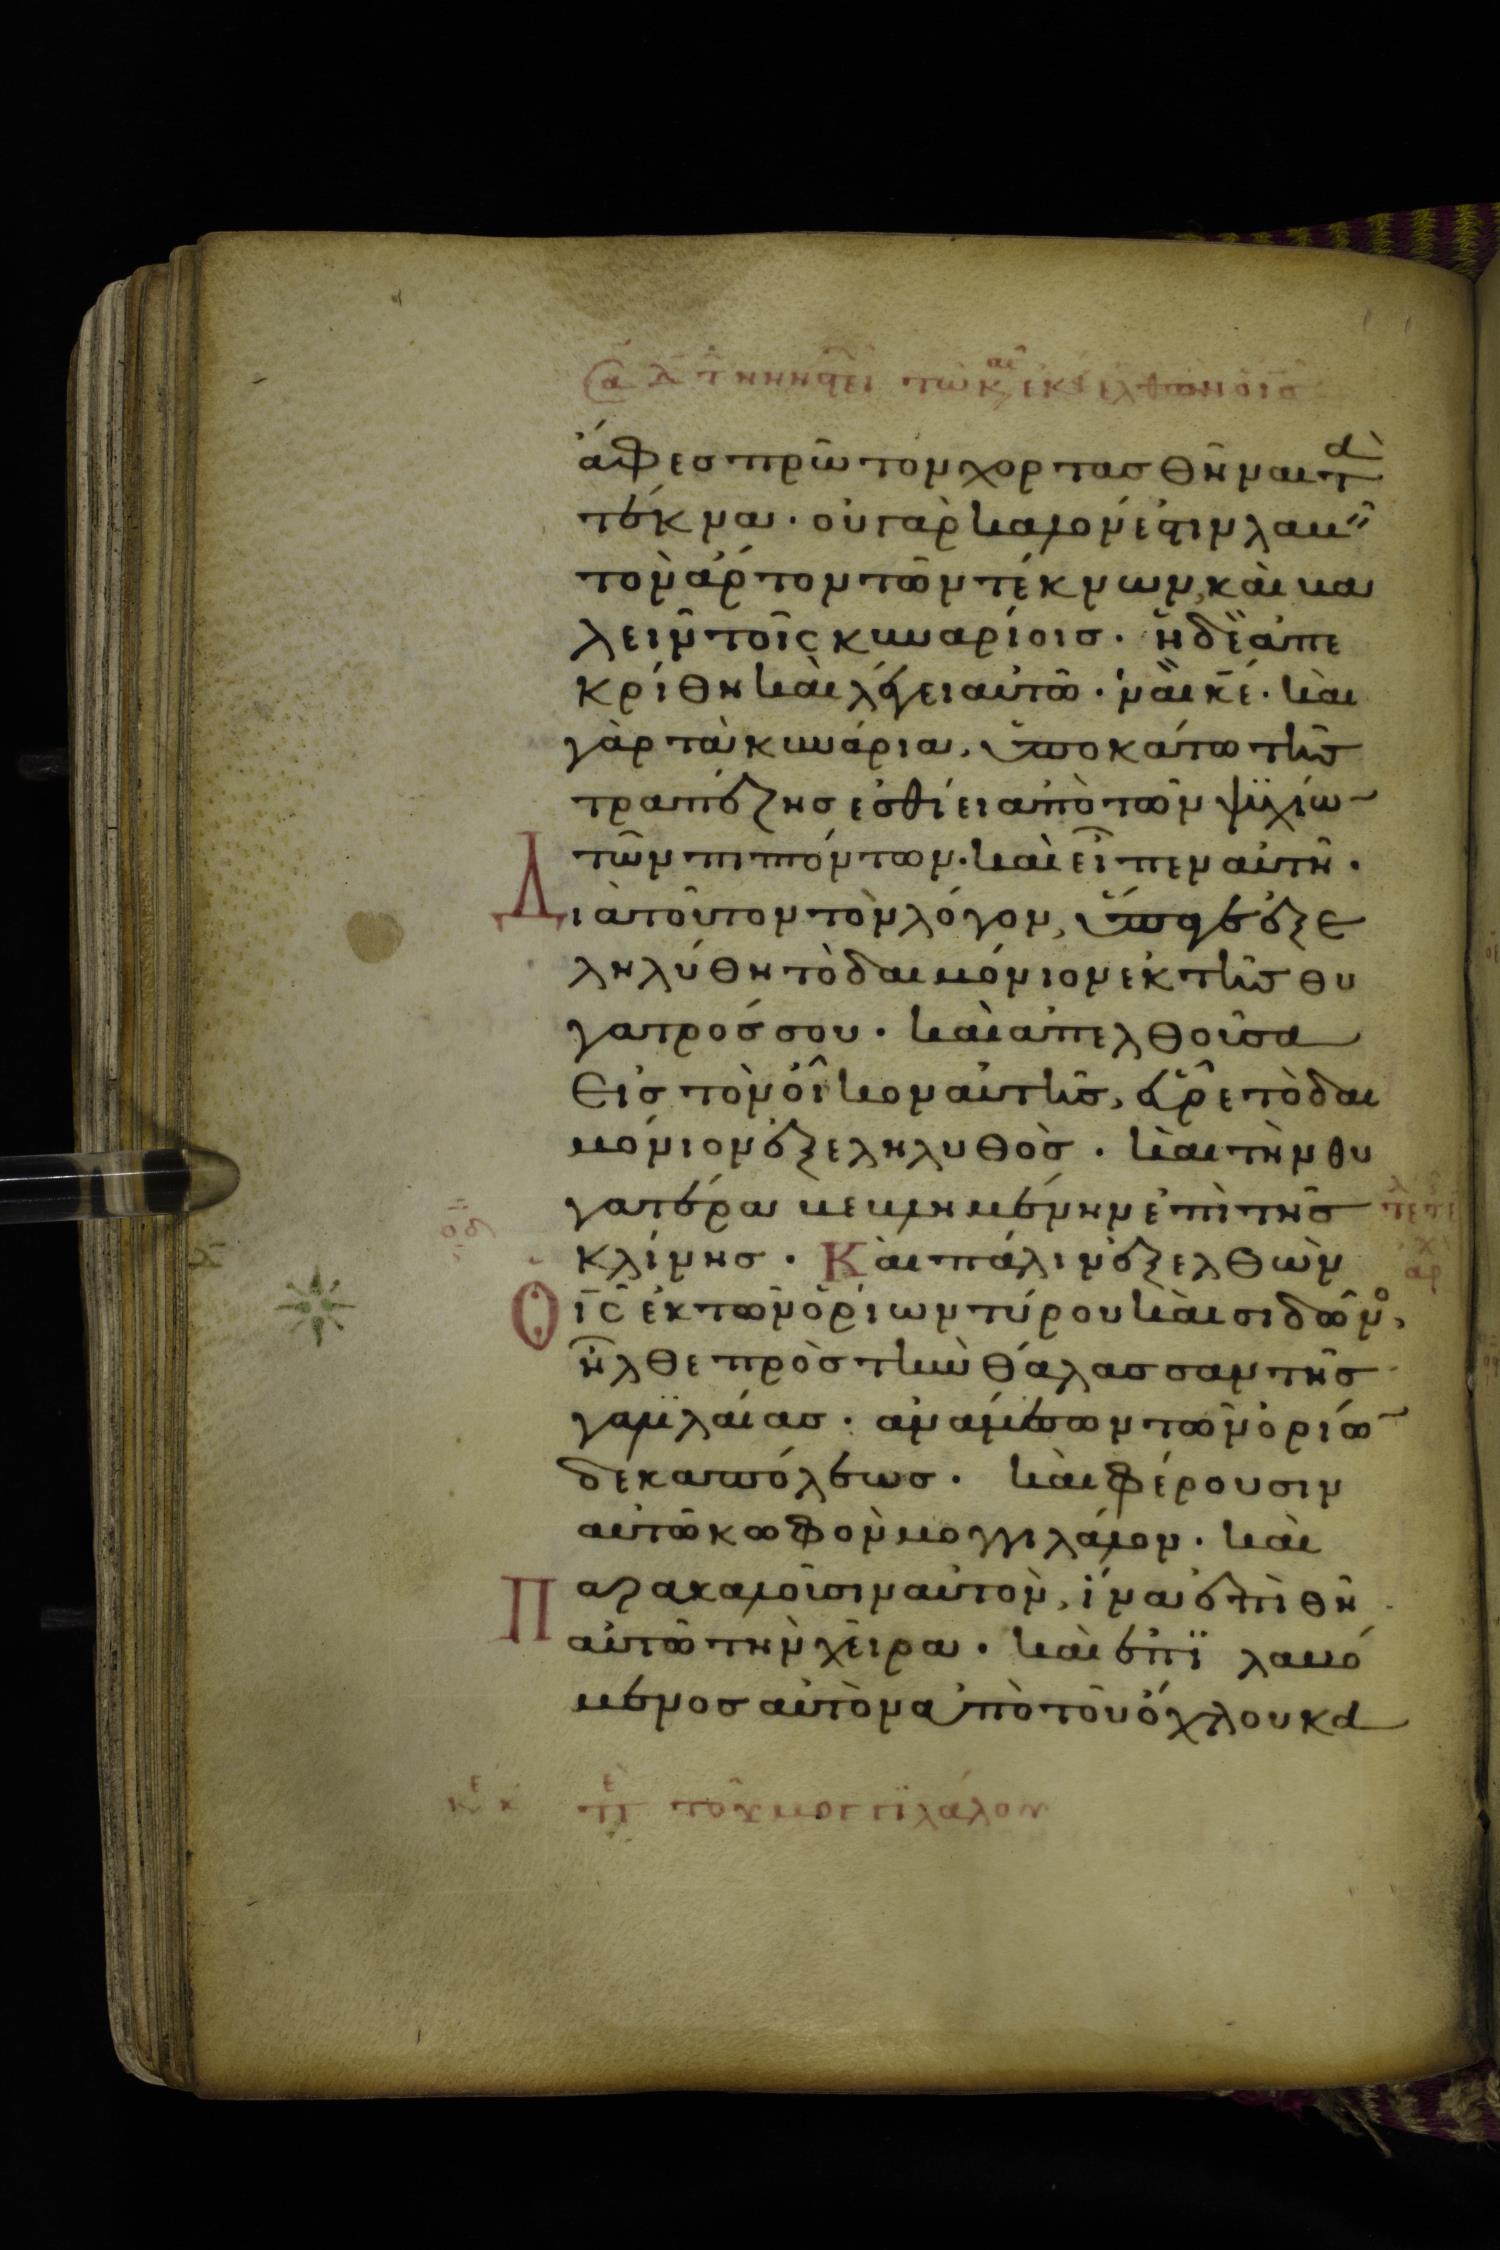 ἄφες πρῶτον χορτασθῆναι τὰ
τέκνα· οὐ γὰρ καλὸν ἐστιν λαβεῖ
τὸν ἄρτον τῶν τέκνων, καὶ βα
λεῖν τοῖς κυναρίοις· ἡ δὲ ἀπε
κρίθη καὶ λέγει αὐτῶ· ναὶ κε· καὶ
γὰρ τὰ κυνάρια, ὑποκάτω τῆς
τραπέζης ἐσθίει ἀπὸ τῶν ψιχίω
τῶν πιπτόντων· καὶ εἶπεν αὐτῆ·
Διὰ τοῦτον τὸν λόγον, ὕπαγε ἐξε
ληλύθη τὸ δαιμόνιον ἐκ τῆς θυ
γατρός σου· καὶ ἀπελθοῦσα
εἰς τὸν οἶκον αὐτῆς, εὗρε τὸ δαι
μόνιον ἐξεληλυθὸς· καὶ τὴν θυ
γατέρα βεβλημένην ἐπὶ τῆς
κλίνης· Καὶ πάλιν ἐξελθὼν
Ὁ ις ἐκ τῶν ὁρίων τύρου καὶ σιδῶνο,
ἦλθε πρὸς τὴν θάλασσαν τῆς
γαλιλαίας· ἀνάμεσων τῶν ὁρίω
δεκαπόλεως· καὶ φέρουσιν
αὐτῶ κωφὸν μογγιλάλον· καὶ
Παρακαλοῦσιν αὐτὸν, ἵνα ἐπιθῆ
αὐτῶ τὴν χεῖρα· καὶ ἐπιλαβό
μενος αὐτὸν ἀπὸ τοῦ ὄχλου κα
τοῦ μογγιλάλου